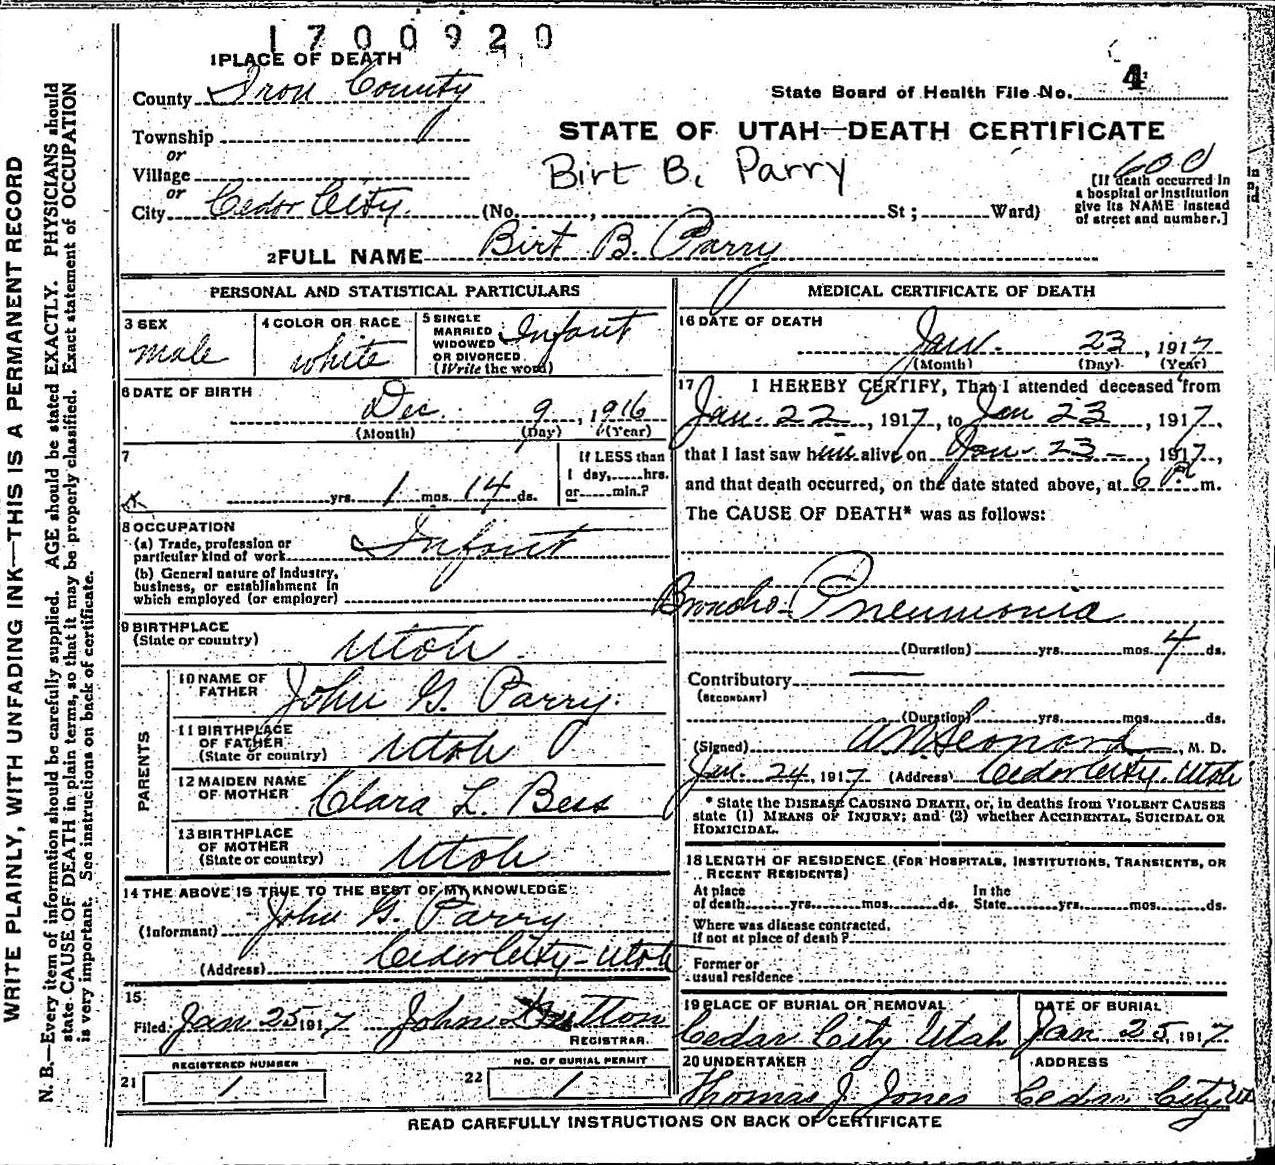 1700920
1 PLACE OF DEATH
County Iron County
State Board of Health File No. 4
Township
or
STATE OF UTAH—DEATH CERTIFICATE
Birt B. Parry
Village
or
600
[If death occurred in
a hospital or institution
give its NAME instead
of street and number.]
City Cedar City. (No. , St; Ward)
2 FULL NAME Birt B. Parry
PERSONAL AND STATISTICAL PARTICULARS
3 SEX
male
4 COLOR OR RACE
white
5 SINGLE
MARRIED
WIDOWED
OR DIVORCED
(Write the word)
Infant
6 DATE OF BIRTH
Dec. 9, 1916
(Month) (Day) (Year)
7
yrs. 1 mos. 14 ds.
If LESS than
1 day, hrs.
or min.?
8 OCCUPATION
(a) Trade, profession or
particular kind of work
Infant
(b) General nature of Industry,
business, or establishment in
which employed (or employer)
9 BIRTHPLACE
(State or country) Utah.
PARENTS
10 NAME OF
FATHER John G. Parry.
11 BIRTHPLACE
OF FATHER
(State or country) Utah
12 MAIDEN NAME
OF MOTHER Clara L. Bess
13 BIRTHPLACE
OF MOTHER
(State or country) Utah
14 THE ABOVE IS TRUE TO THE BEST OF MY KNOWLEDGE
(Informant) John G. Parry
(Address) Cedar City-Utah
15
Filed Jan 25 1917 John
REGISTRAR
21 REGISTERED NUMBER
1
22 NO. OF BURIAL PERMIT
1
MEDICAL CERTIFICATE OF DEATH
16 DATE OF DEATH
Jan. 23, 1917
(Month) (Day) (Year)
17 I HEREBY CERTIFY, That I attended deceased from
Jan. 22, 1917, to Jan 23, 1917,
that I last saw him alive on Jan. 23-, 1917,
and that death occurred, on the date stated above, at 6 P. m.
The CAUSE OF DEATH* was as follows:
Broncho-Pneumonia
(Duration) yrs. mos. 4 ds.
Contributory
(SECONDARY)
(Duration) yrs. mos. ds.
(Signed) A N Leonard, M. D.
Jan. 24, 1917 (Address) Cedar City. Utah
* State the DISEASE CAUSING DEATH, or, in deaths from VIOLENT CAUSES
state (1) MEANS OF INJURY; and (2) whether ACCIDENTAL, SUICIDAL OR
HOMICIDAL.
18 LENGTH OF RESIDENCE (FOR HOSPITALS, INSTITUTIONS, TRANSIENTS, OR
RECENT RESIDENTS)
At place
of death yrs. mos. ds.
In the
State yrs. mos. ds.
Where was disease contracted,
if not at place of death?
Former or
usual residence
19 PLACE OF BURIAL OR REMOVAL
Cedar City Utah
DATE OF BURIAL
Jan 25, 1917
20 UNDERTAKER
Thomas J. Jones
ADDRESS
Cedar City Ut
READ CAREFULLY INSTRUCTIONS ON BACK OF CERTIFICATE
WRITE PLAINLY, WITH UNFADING INK—THIS IS A PERMANENT RECORD
N. B.—Every item of information should be carefully supplied. AGE should be stated EXACTLY. PHYSICIANS should
state CAUSE OF DEATH in plain terms, so that it may be properly classified. Exact statement of OCCUPATION
is very important. See instructions on back of certificate.